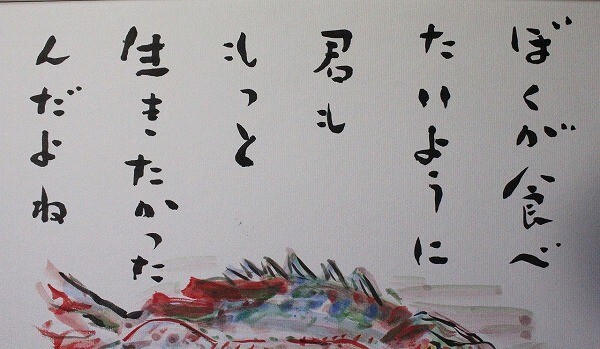 ぼくが食べ
たいように
君も
もっと
生きたかった
んだよね